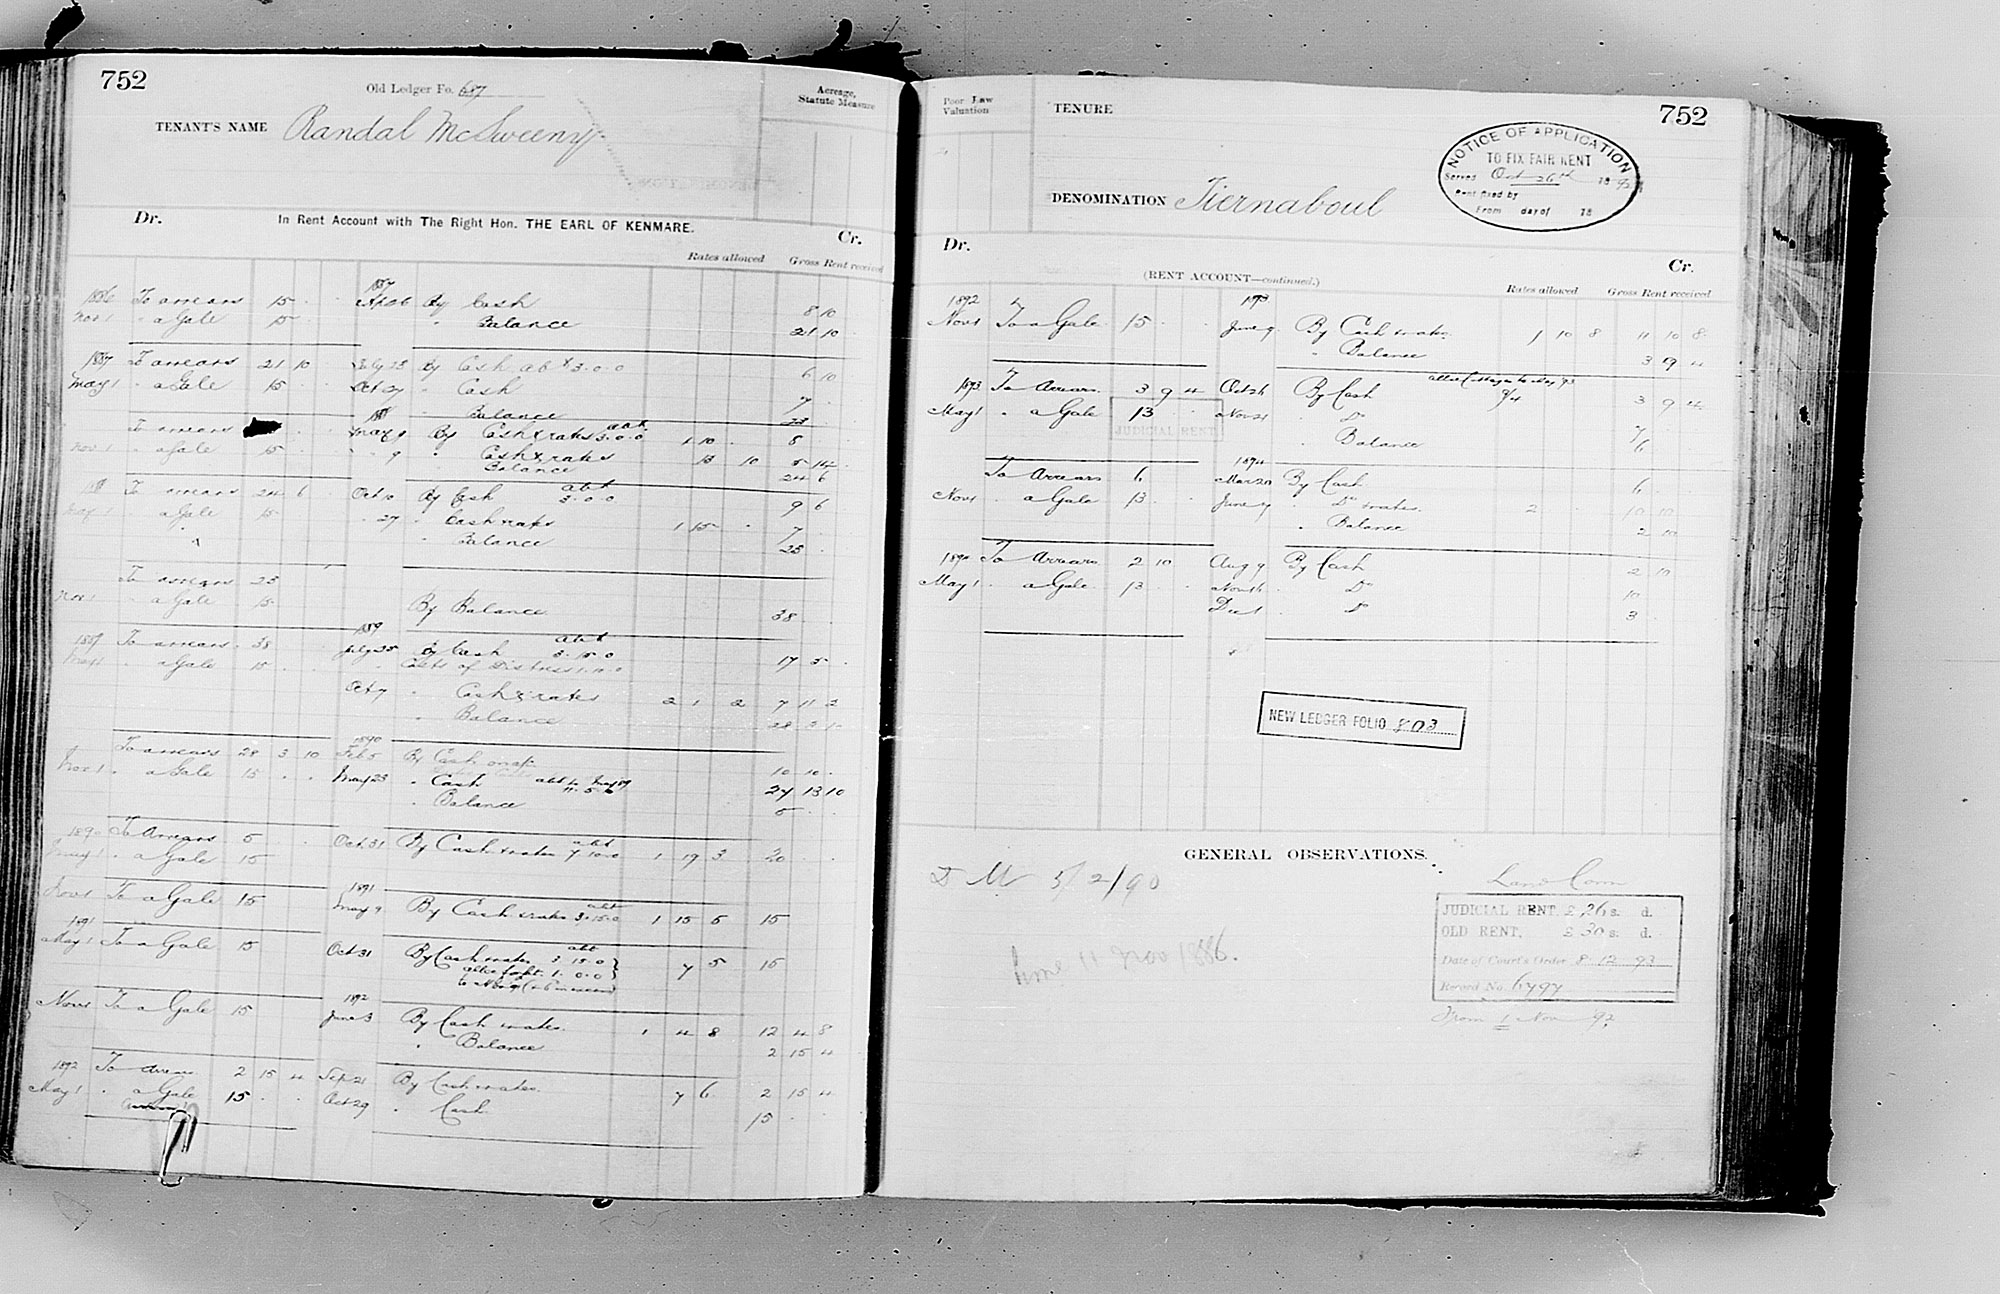 752
Old Ledger Fo. 687
Acreage, Statute Measure
TENANT'S NAME Randal McSweeny
Dr. In Rent Account with The Right Hon. THE EARL OF KENMARE. Cr.
Rates allowed Gross Rent received
1887
1886 To arrears 15 By Cash 8 10
Nov 1 " a Gale 15 " Balance 21 10
1887 To arrears 21 10 July 28 By Cash ab t 3.0.0 6 10
May 1 " a Gale 15 Oct 27 " Cash 7
" Balance 23
1888
To arrears May 9 By Cash & rates abt 3.0.0 1 10 8
Nov 1 " a Gale 15 " 9 " Cash & rates 13 10 5 14
Balance 24 6
1888 To arrears 24 6 Oct 10 By Cash abt 3.0.0 9 6
May 1 " a Gale 15 " 27 " Cash & rates 1 15 7
" Balance 23
To arrears 23
Nov 1 " a Gale 15 By Balance 38
1889
1889 To arrears 38 July 25 By Cash abt 3.15.0 17 5
May 1 " a Gale 15 " Costs of Distress 1.10.0
Oct 7 " Cash & rates 2 1 2 7 11 2
" Balance 28 3 10
1890
To arrears 28 3 10 Feb 5 By Cash on a/c 10 10
Nov 1 " a Gale 15 May 23 " Cash abt to May 89 27 13 10
" Balance 5
1890 To Arrears 5 Oct 31 By Cash & rates abt 7.10.0 1 19 3 20
May 1 " a Gale 15
1891
Nov 1 To a Gale 15 May 9 By Cash & rates abt 3.15.0 1 15 5 15
1891
May 1 To a Gale 15 Oct 31 By Cash & rates abt 3 15.0 7 5 15
1.0.0
1892
Nov 1 To a Gale 15 June 3 By Cash & rates 1 4 8 12 4 8
" Balance 2 15 4
1892 To Arrears 2 15 4 Sep 21 By Cash & rates 7 6 2 15 4
May 1 " a Gale 15 Oct 29 " Cash 15
752
Poor Law Valuation
TENURE
DENOMINATION Tiernaboul
NOTICE OF APPLICATION
TO FIX FAIR RENT
Served Oct 26th 1893
Rent fixed by
From day of 18
Dr. Cr.
(RENT ACCOUNT—continued.)
Rates allowed Gross Rent received
1892 1893
Nov 1 To a Gale 15 June 9 By Cash & rates 1 10 8 11 10 8
" Balance 3 9 4
1893 To Arrears 3 9 4 Oct 26 By Cash 3 9 4
May 1 " a Gale 13 Nov 21 " Do 7
JUDICIAL RENT
" Balance 6
1894
To Arrears 6 Mar 20 By Cash 6
Nov 1 " a Gale 13 June 7 " Do & rates 2 10 10
" Balance 2 10
1894 To Arrears 2 10 Aug 9 By Cash 2 10
May 1 " a Gale 13 Nov 16 " Do 10
Dec 1 " Do 3
NEW LEDGER FOLIO 803
GENERAL OBSERVATIONS.
D M 5/2/90
time 11 Nov 1886.
Land Com
JUDICIAL RENT, £ 26 s. d.
OLD RENT, £ 30 s. d.
Date of Court's Order 8 12 93
Record No. 6797
From 1 Nov 92